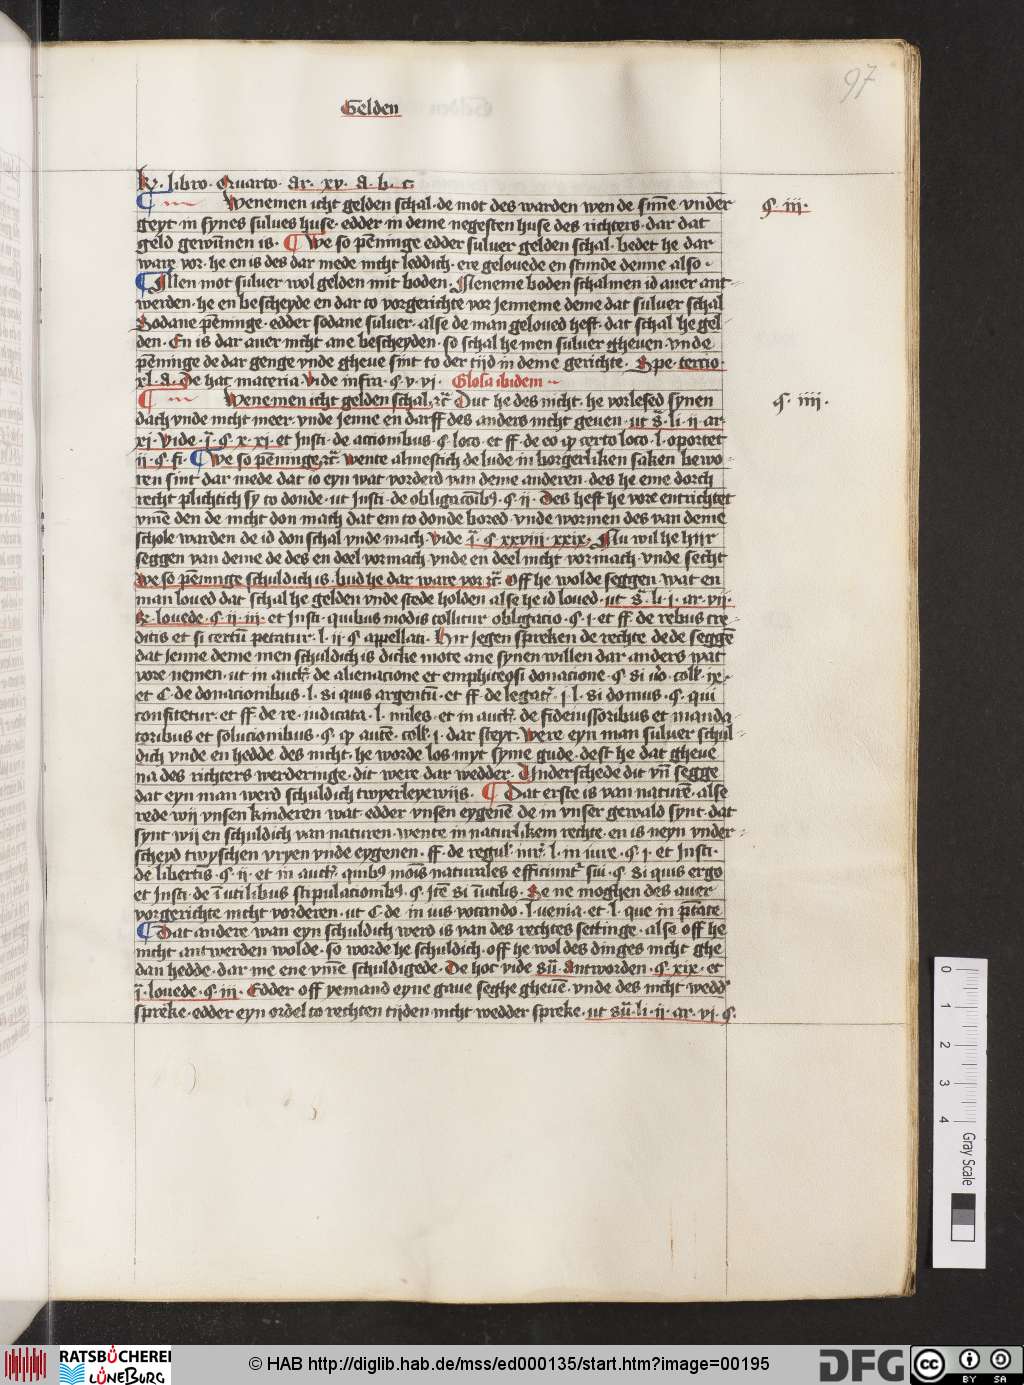 97
Gelden
R. libro. Quarto. ar. xv. A. b. c.
Wenemen icht gelden schal. de mot des warden wen de sunne vnder
§. iii.
geyt. in synes sulues huse. edder in deme negesten huse des richters. dar dat
geld gewunnen is. We so penninge edder suluer gelden schal. bedet he dar
ware vor. he en is des dar mede nicht leddich. ere gelouede en stunde denne also.
Allen mot suluer wol gelden mit boden. Neneme boden schalmen id auer ant
werden. he en bescheyde en dar to vorgerichte vor jenneme deme dat suluer schal
Sodane penninge. edder sodane suluer. alse de man geloued heft. dat schal he gel
den. En is dar auer nicht ane bescheyden. so schal he men suluer gheuen. vnde
penninge de dar genge vnde gheue sint to der tijd in deme gerichte. Spe. tercio.
xl. a. De hac materia. Vide infra. §. v. vj. Glosa ibidem
Wenemen icht gelden schal. rc. Dut he des nicht. he vorlesed synen
§. iiii.
dach vnde nicht meer. vnde jenne en darff des anders nicht geuen. ut s. li. ii. ar
xj. Vide. j. §. x. xj. et Insti. de actionibus. §. loco. et ff. de eo qp certo loco. l. oportet
ii. §. fi. We so penninge. rc. wente almestich de lude in borgerliken saken bewo
ren sint dar mede dat io eyn wat vorderd van deme anderen. des he eme dorch
recht plichtich sy to donde. ut Insti. de obligacoib9. §. ii. Des heft he vore entrichtet
vme den de nicht don mach dat em to donde bored. vnde wormen des van deme
schole warden de id don schal vnde mach. Vide j. §. xxviii. xxix. Nu wil he hijr
seggen van deme de des en deel vormach vnde en deel nicht vormach. vnde secht
We so penninge schuldich is. bud he dar ware vor rc. Off he wolde seggen. wat en
man loued dat schal he gelden vnde stede holden alse he id loued. ut s. li. j. ar. vii.
R. louede. §. ii. iii. et Insti. quibus modis tollitur obligacio. §. j. et ff. de rebus cre
ditis et si certum petatur. l. ii. §. appellati. Hir jegen spreken de rechte de de segge
dat jenne deme men schuldich is dicke mote ane synen willen dar anders wat
vore nemen. ut in auct. de alienacione et emphiteosi donacione. §. Si vo. coll. ix.
et C. de donacionibus. l. si quis argentum. et ff. de legat. j. l. si domus. §. qui
confitetur. et ff. de re. iudicata. l. miles. et in auct. de fideiussoribus et manda
toribus et solucionibus. §. qp autem. coll. j. dar steyt. Were eyn man suluer schul
dich vnde en hedde des nicht. he worde los myt syme gude. dest he dat gheue
na des richters werderinge. dit were dar wedder. Underschede dit vn segge
dat eyn man werd schuldich twyerleye wijs. Dat erste is van nature. alse
rede wij vnsen kinderen wat. edder vnsen eygene de in vnser gewald synt. dat
synt wij en schuldich van naturen. wente in naturlikem rechte. en is neyn vnder
scheyd twyschen vryen vnde eygenen. ff. de regul. iur. l. in iure. §. j. et Insti.
de libertis. §. ii. et in auct. quib9 mois naturales efficiunt sui. §. si quis ergo
et Insti. de inutilibus stipulacionib9. §. Ite si inutilis. Se ne moghen des auer
vorgerichte nicht vorderen. ut C. de in ius vocando. l. uenia. et. l. que in ptate
Dat andere wan eyn schuldich werd is van des rechtes settinge. alse off he
nicht antwerden wolde. so worde he schuldich. off he wol des dinges nicht ghe
dan hedde. dar me ene vme schuldigede. De hoc vide su. Antworden. §. xix. et
j. louede. §. iii. Edder off yemand eyne graue seghe gheue. vnde des nicht wedd
spreke. edder eyn ordel to rechten tijden nicht wedder spreke. ut su. li. ii. ar. vj. §.
0 1 2 3 4 Gray Scale
RATSBÜCHEREI LÜNEBURG
© HAB http://diglib.hab.de/mss/ed000135/start.htm?image=00195
DFG
cc BY SA